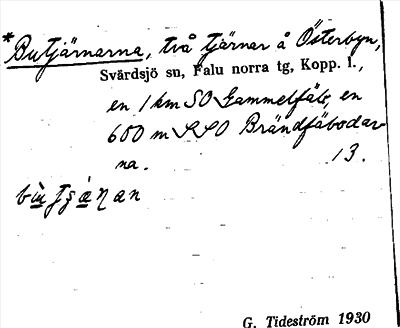 *Butjärnarna, två tjärnar å Österbyn,
Svärdsjö sn, Falu norra tg, Kopp. l.,
en 1 km SO Gammelfäb, en
600 m SSO Brändfäbodar
na. 13.
G. Tideström 1930